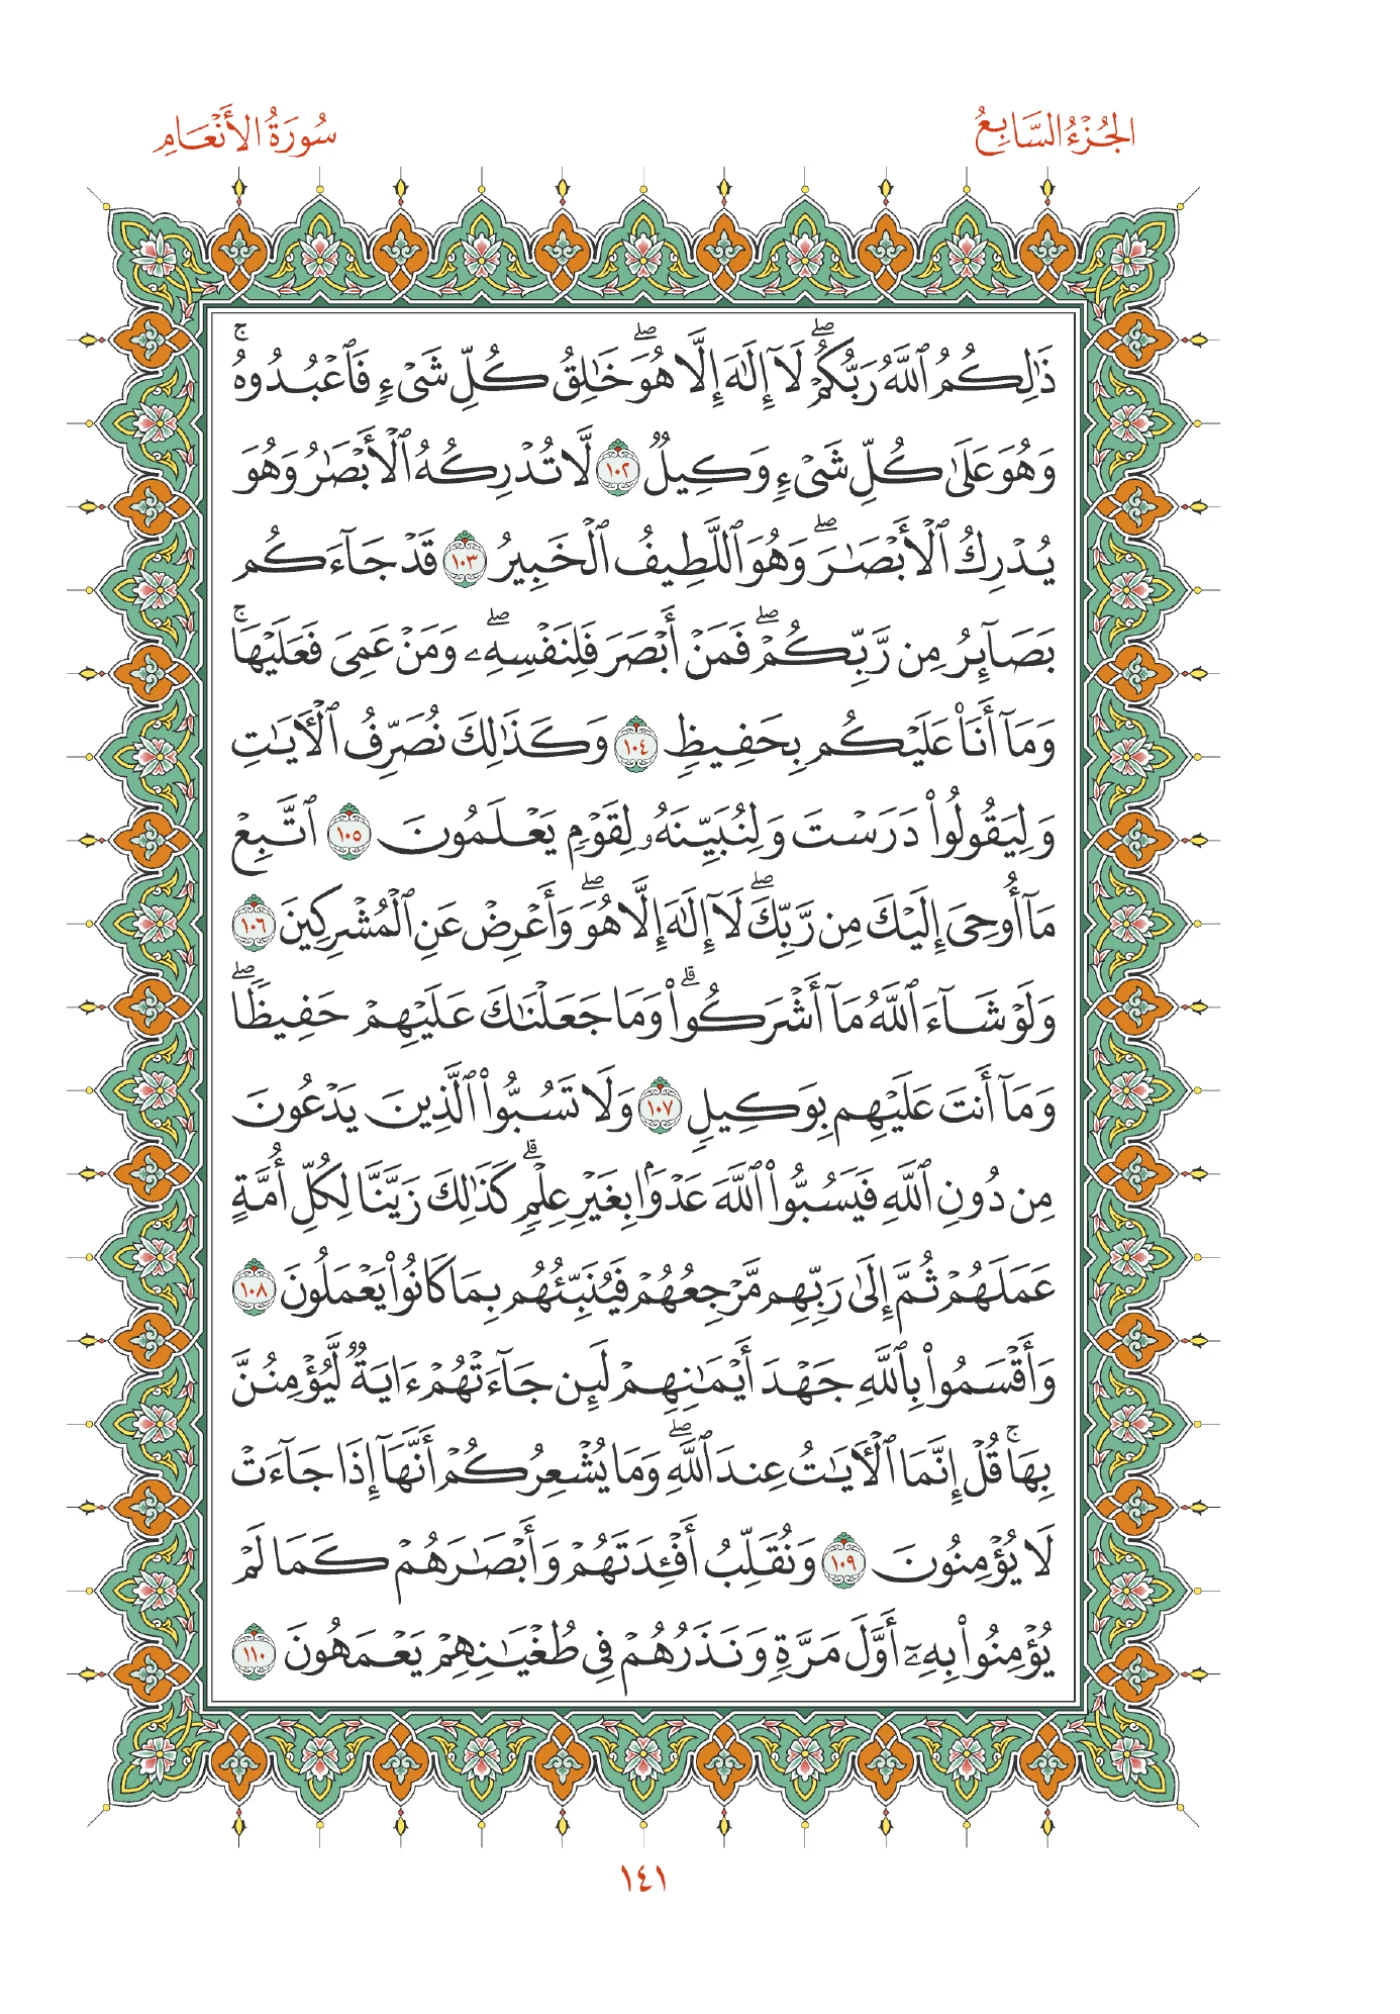 الجُزْءُ السَّابِعُ
سُورَةُ الأَنْعَامِ
ذَٰلِكُمُ ٱللَّهُ رَبُّكُمْۖ لَآ إِلَٰهَ إِلَّا هُوَۖ خَٰلِقُ كُلِّ شَىْءٍ فَٱعْبُدُوهُۚ
وَهُوَ عَلَىٰ كُلِّ شَىْءٍ وَكِيلٌ ١٠٢ لَّا تُدْرِكُهُ ٱلْأَبْصَٰرُ وَهُوَ
يُدْرِكُ ٱلْأَبْصَٰرَۖ وَهُوَ ٱللَّطِيفُ ٱلْخَبِيرُ ١٠٣ قَدْ جَآءَكُم
بَصَآئِرُ مِن رَّبِّكُمْۖ فَمَنْ أَبْصَرَ فَلِنَفْسِهِۦۖ وَمَنْ عَمِىَ فَعَلَيْهَاۚ
وَمَآ أَنَا۠ عَلَيْكُم بِحَفِيظٍ ١٠٤ وَكَذَٰلِكَ نُصَرِّفُ ٱلْأٓيَٰتِ
وَلِيَقُولُوا۟ دَرَسْتَ وَلِنُبَيِّنَهُۥ لِقَوْمٍ يَعْلَمُونَ ١٠٥ ٱتَّبِعْ
مَآ أُوحِىَ إِلَيْكَ مِن رَّبِّكَۖ لَآ إِلَٰهَ إِلَّا هُوَۖ وَأَعْرِضْ عَنِ ٱلْمُشْرِكِينَ ١٠٦
وَلَوْ شَآءَ ٱللَّهُ مَآ أَشْرَكُوا۟ۗ وَمَا جَعَلْنَٰكَ عَلَيْهِمْ حَفِيظًاۖ
وَمَآ أَنتَ عَلَيْهِم بِوَكِيلٍ ١٠٧ وَلَا تَسُبُّوا۟ ٱلَّذِينَ يَدْعُونَ
مِن دُونِ ٱللَّهِ فَيَسُبُّوا۟ ٱللَّهَ عَدْوًۢا بِغَيْرِ عِلْمٍۗ كَذَٰلِكَ زَيَّنَّا لِكُلِّ أُمَّةٍ
عَمَلَهُمْ ثُمَّ إِلَىٰ رَبِّهِم مَّرْجِعُهُمْ فَيُنَبِّئُهُم بِمَا كَانُوا۟ يَعْمَلُونَ ١٠٨
وَأَقْسَمُوا۟ بِٱللَّهِ جَهْدَ أَيْمَٰنِهِمْ لَئِن جَآءَتْهُمْ ءَايَةٌ لَّيُؤْمِنُنَّ
بِهَاۚ قُلْ إِنَّمَا ٱلْأٓيَٰتُ عِندَ ٱللَّهِۖ وَمَا يُشْعِرُكُمْ أَنَّهَآ إِذَا جَآءَتْ
لَا يُؤْمِنُونَ ١٠٩ وَنُقَلِّبُ أَفْـِٔدَتَهُمْ وَأَبْصَٰرَهُمْ كَمَا لَمْ
يُؤْمِنُوا۟ بِهِۦٓ أَوَّلَ مَرَّةٍ وَنَذَرُهُمْ فِى طُغْيَٰنِهِمْ يَعْمَهُونَ ١١٠
١٤١